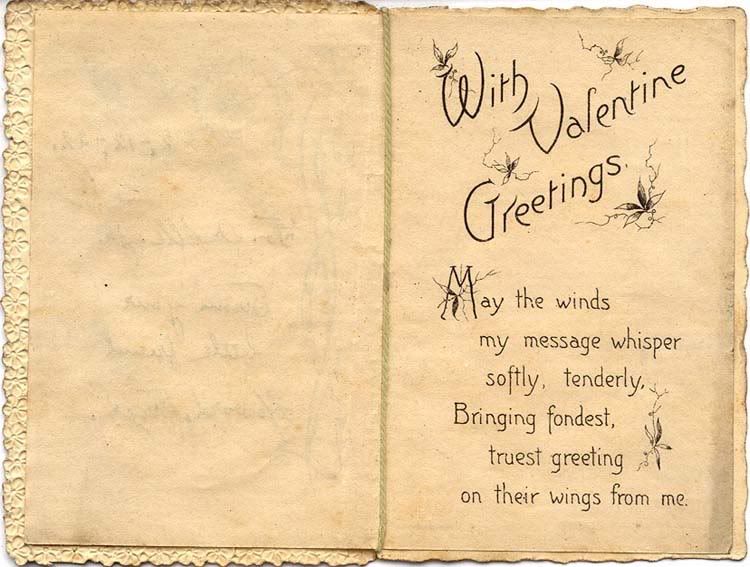 With
Valentine
Greetings.
May the winds
my message whisper
softly, tenderly,
Bringing fondest,
truest greeting
on their wings from me.